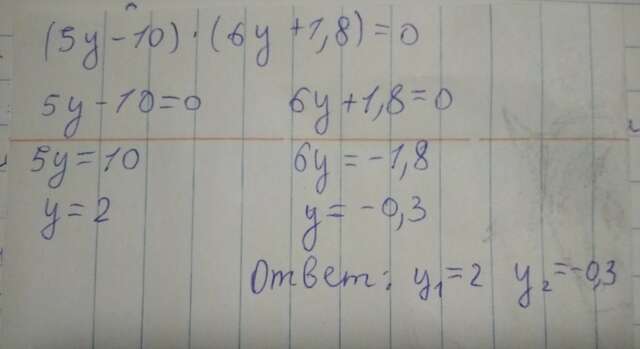 (5y-10)·(6y+1,8)=0
5y-10=0 6y+1,8=0
5y=10 6y=-1,8
y=2 y=-0,3
Ответ: y₁=2 y₂=-0,3